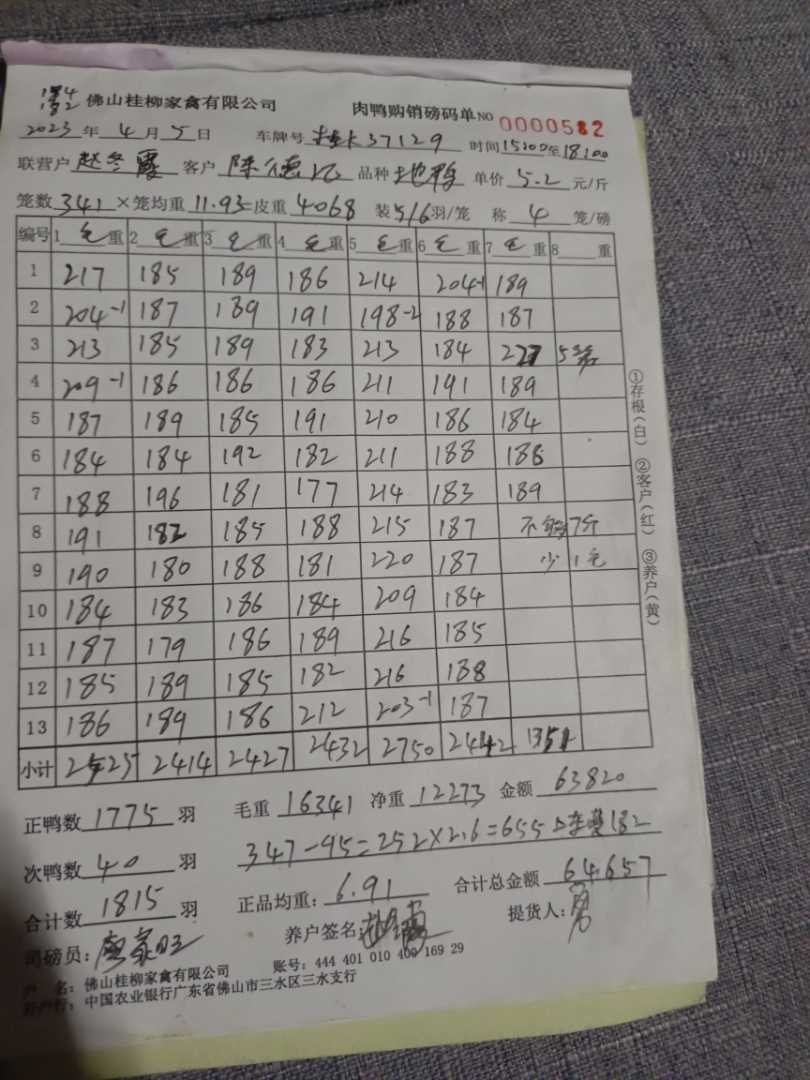 佛山桂柳家禽有限公司 肉鸭购销磅码单 NO 0000582
2023年4月5日 车牌号 37129 时间15:00至18:00
联营户 赵冬霞 客户 陈德 品种 地鸭 单价 5.2 元/斤
笼数 341 ×笼均重 11.93 皮重 4068 装 5/6 羽/笼 称 4 笼/磅
编号 1 毛重 2 毛重 3 毛重 4 毛重 5 毛重 6 毛重 7 毛重 8 重
1 217 185 189 186 214 204-1 189
2 204-1 187 139 191 198-2 188 187
3 213 185 189 183 213 184 227 5笼
4 209-1 186 186 186 211 191 189
5 187 189 185 191 210 186 184
6 184 184 192 182 211 188 186
7 188 196 181 177 214 183 189
8 191 182 185 188 215 187 不够7斤
9 190 180 188 181 220 187 少1毛
10 184 183 186 184 209 184
11 187 179 186 189 216 185
12 185 189 185 182 216 188
13 186 189 186 212 203-1 187
小计 2525 2414 2427 2432 2750 2442 1351
正鸭数 1775 羽 毛重 16341 净重 12273 金额 63820
次鸭数 40 羽 347-95=252×2.6=655 182
合计数 1815 羽 正品均重: 6.91 合计总金额 64657
司磅员: 廖家旺 养户签名: 提货人:
户 名: 佛山桂柳家禽有限公司 账号: 444 401 010 400 169 29
开户行: 中国农业银行广东省佛山市三水区三水支行
①存根(白) ②客户(红) ③养户(黄)